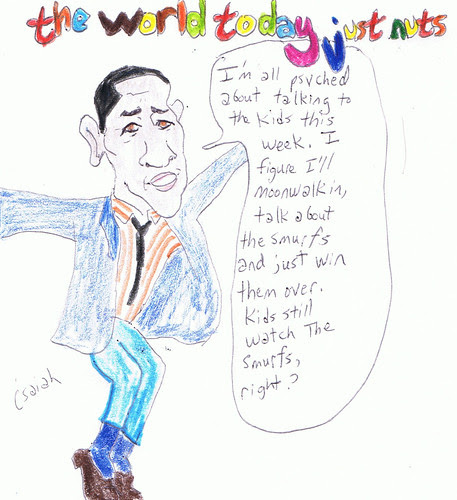 the world today just nuts
I'm all psyched
about talking to
the kids this
week. I
figure I'll
moonwalk in,
talk about
the smurfs
and just win
them over.
Kids still
watch The
Smurfs,
right?
isaiah